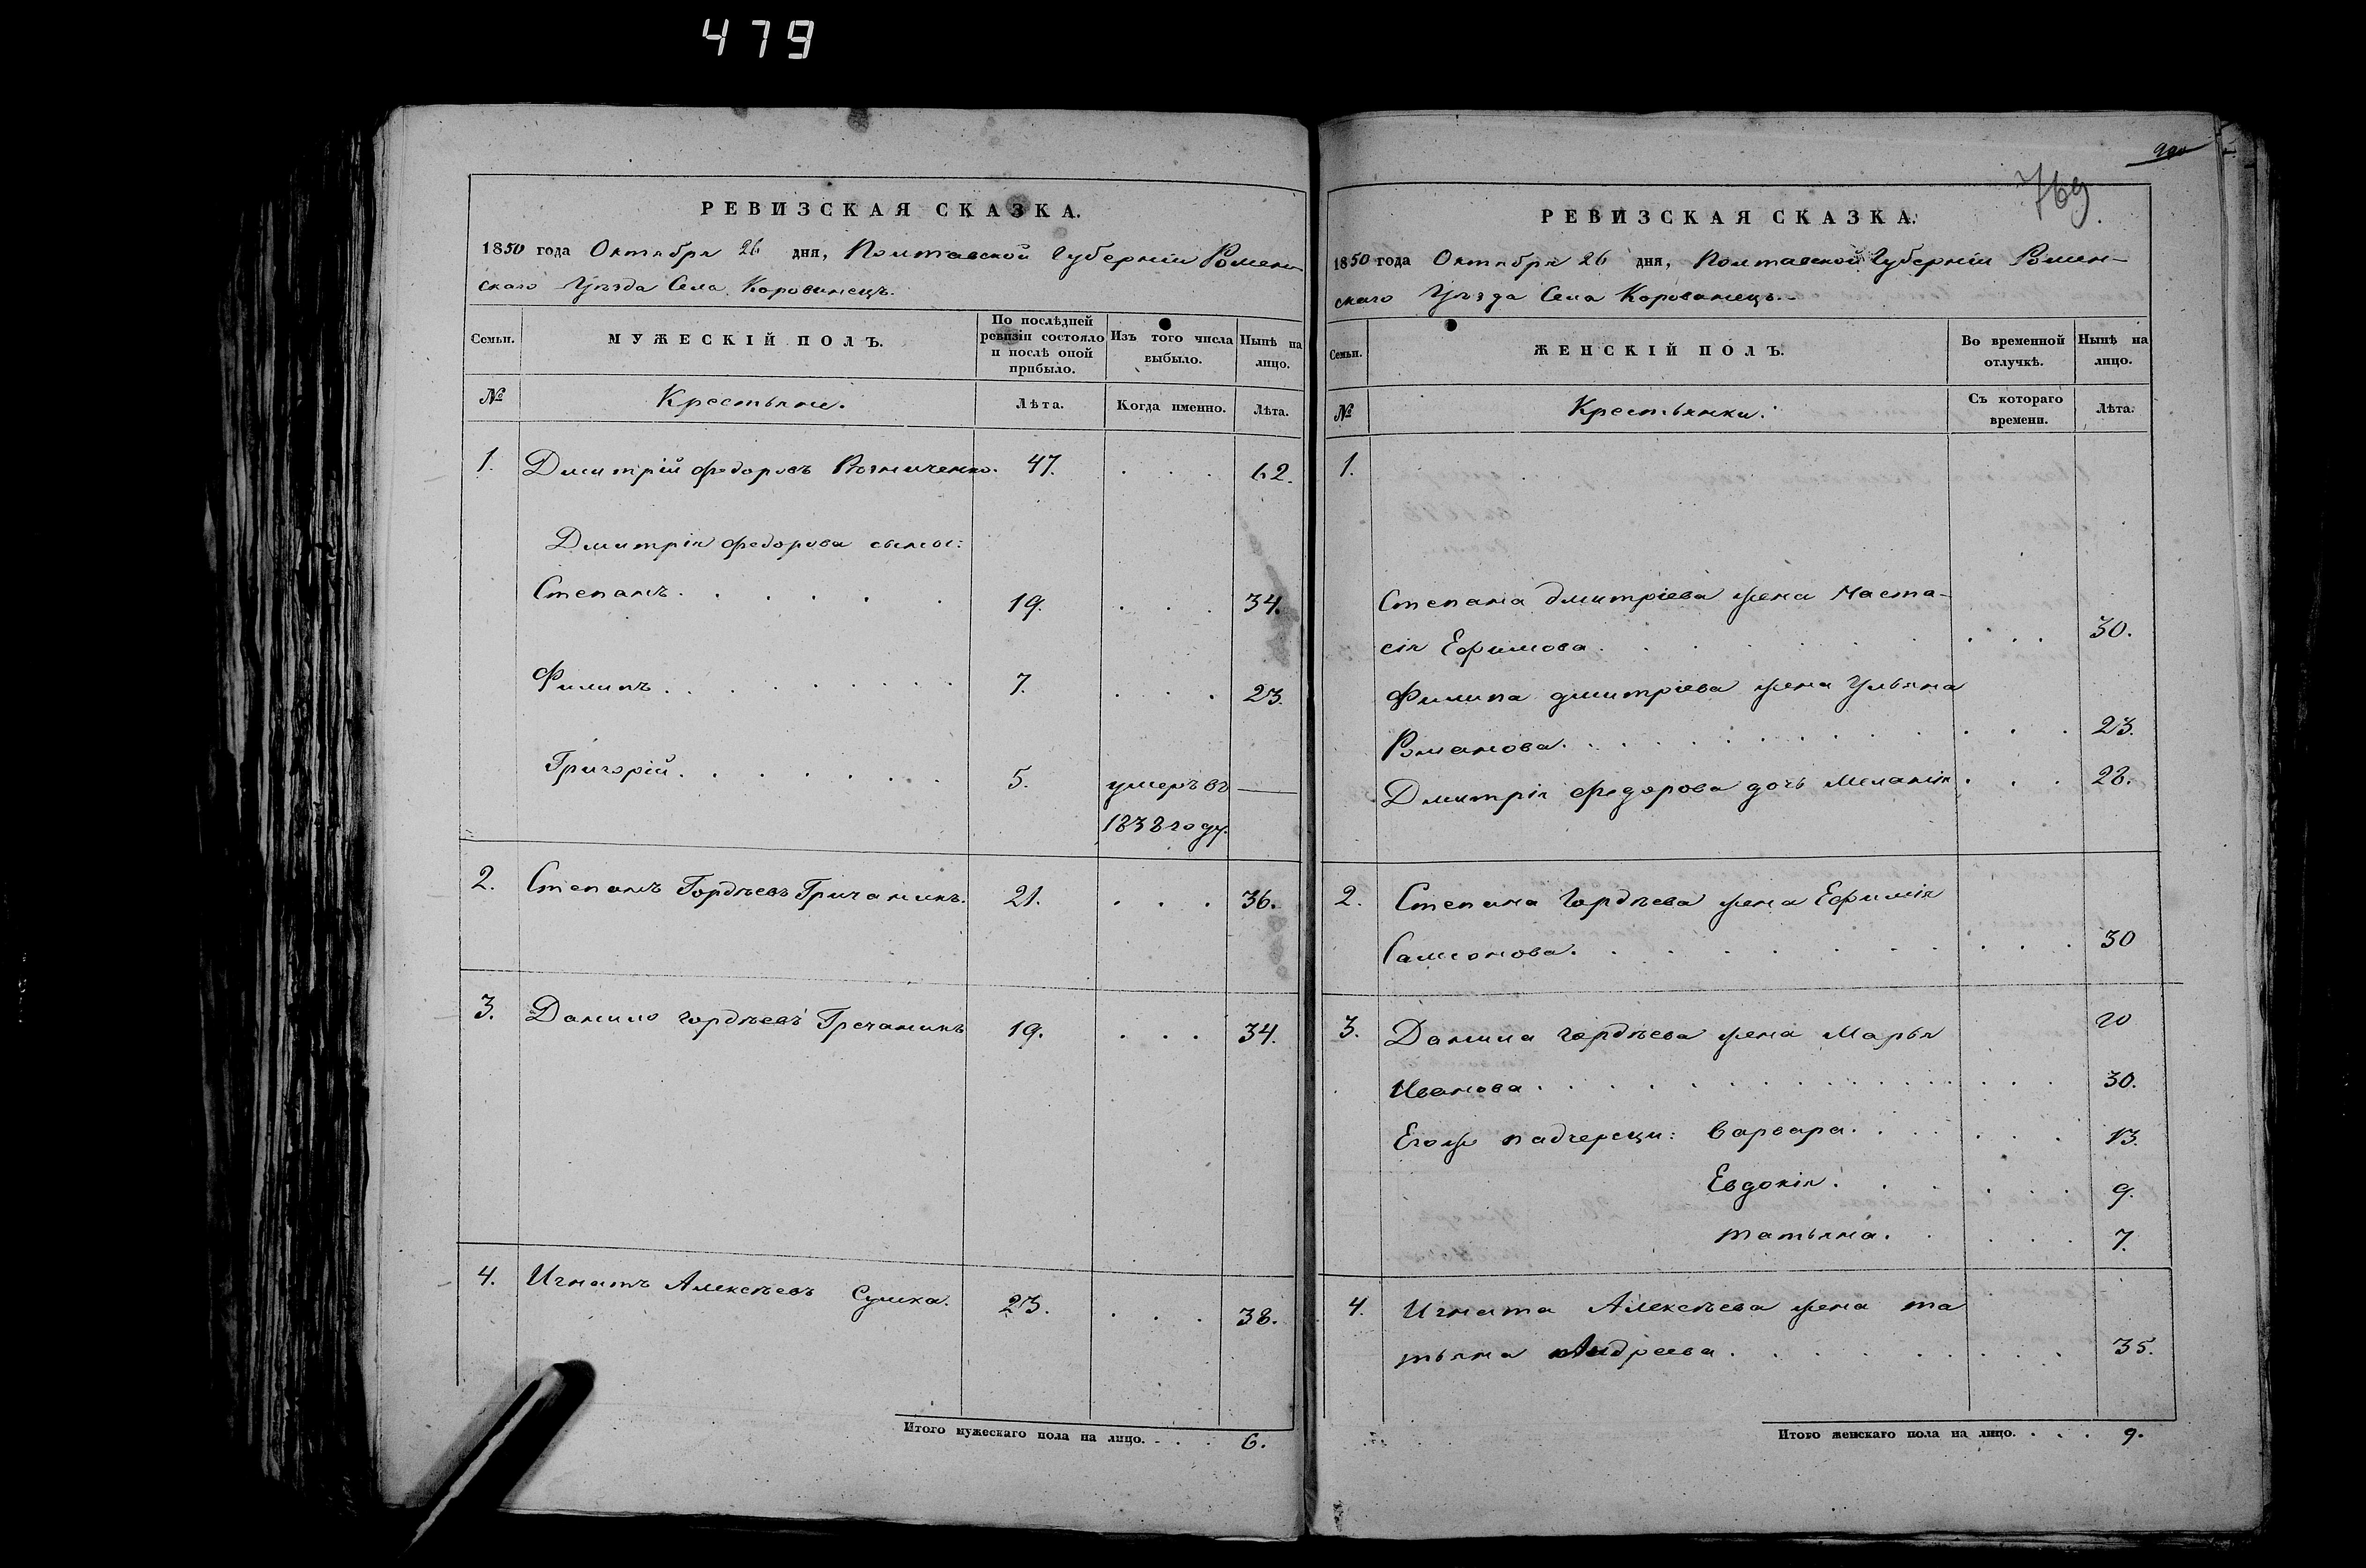 479
РЕВИЗСКАЯ СКАЗКА.
1850 года Октября 26 дня, Полтавской Губерніи Ромен-
скаго Уѣзда Села Коровинецъ.
Семьи.
МУЖЕСКІЙ ПОЛЪ.
По послѣдней ревизіи состояло и послѣ оной прибыло.
Изъ того числа выбыло.
Нынѣ на лицо.
№
Крестьяне.
Лѣта.
Когда именно.
Лѣта.
1. Дмитрій Федоровъ 47. . . . 62.
Дмитрія Федорова сыны:
Степанъ. . . . . . 19. . . . 34.
Филипъ. . . . . . . . . 7. . . . 23.
Григорій. . . . . . . . 5. умеръ въ —
1838 году.
2. Степанъ Гордѣевъ Гричанинъ. 21. . . . 36.
3. Данило Гордѣевъ Гречанинъ 19. . . . 34.
4. Игнатъ Алексѣевъ Сушка. 23. . . . 38.
Итого мужескаго пола на лицо. . . . 6.
900
769
РЕВИЗСКАЯ СКАЗКА.
1850 года Октября 26 дня, Полтавской Губерніи Ромен-
скаго Уѣзда Села Коровинецъ.
Семьи.
ЖЕНСКІЙ ПОЛЪ.
Во временной отлучкѣ.
Нынѣ на лицо.
№
Крестьянки.
Съ котораго времени.
Лѣта.
1.
Степана Дмитріева жена Наста-
сія Ефимова. . . . . . . . . . 30.
Филипа Дмитріева жена Ульяна
Романова. . . . . . . . . . . . 23.
Дмитрія Федорова дочь Меланія . . . 28.
2. Степана Гордѣева жена Ефимія
Самсонова. . . . . . . . . . . 30
3. Данила Гордѣева жена Марья 20
Иванова . . . . . . . . . . . . 30.
Егоже падчерицы: Варвара. . . . . . 13.
Евдокія. . . . . . 9.
Татьяна. . . . . 7.
4. Игната Алексѣева жена Та
тьяна Андреева . . . . . . . . 35.
Итого женскаго пола на лицо. . . . 9.